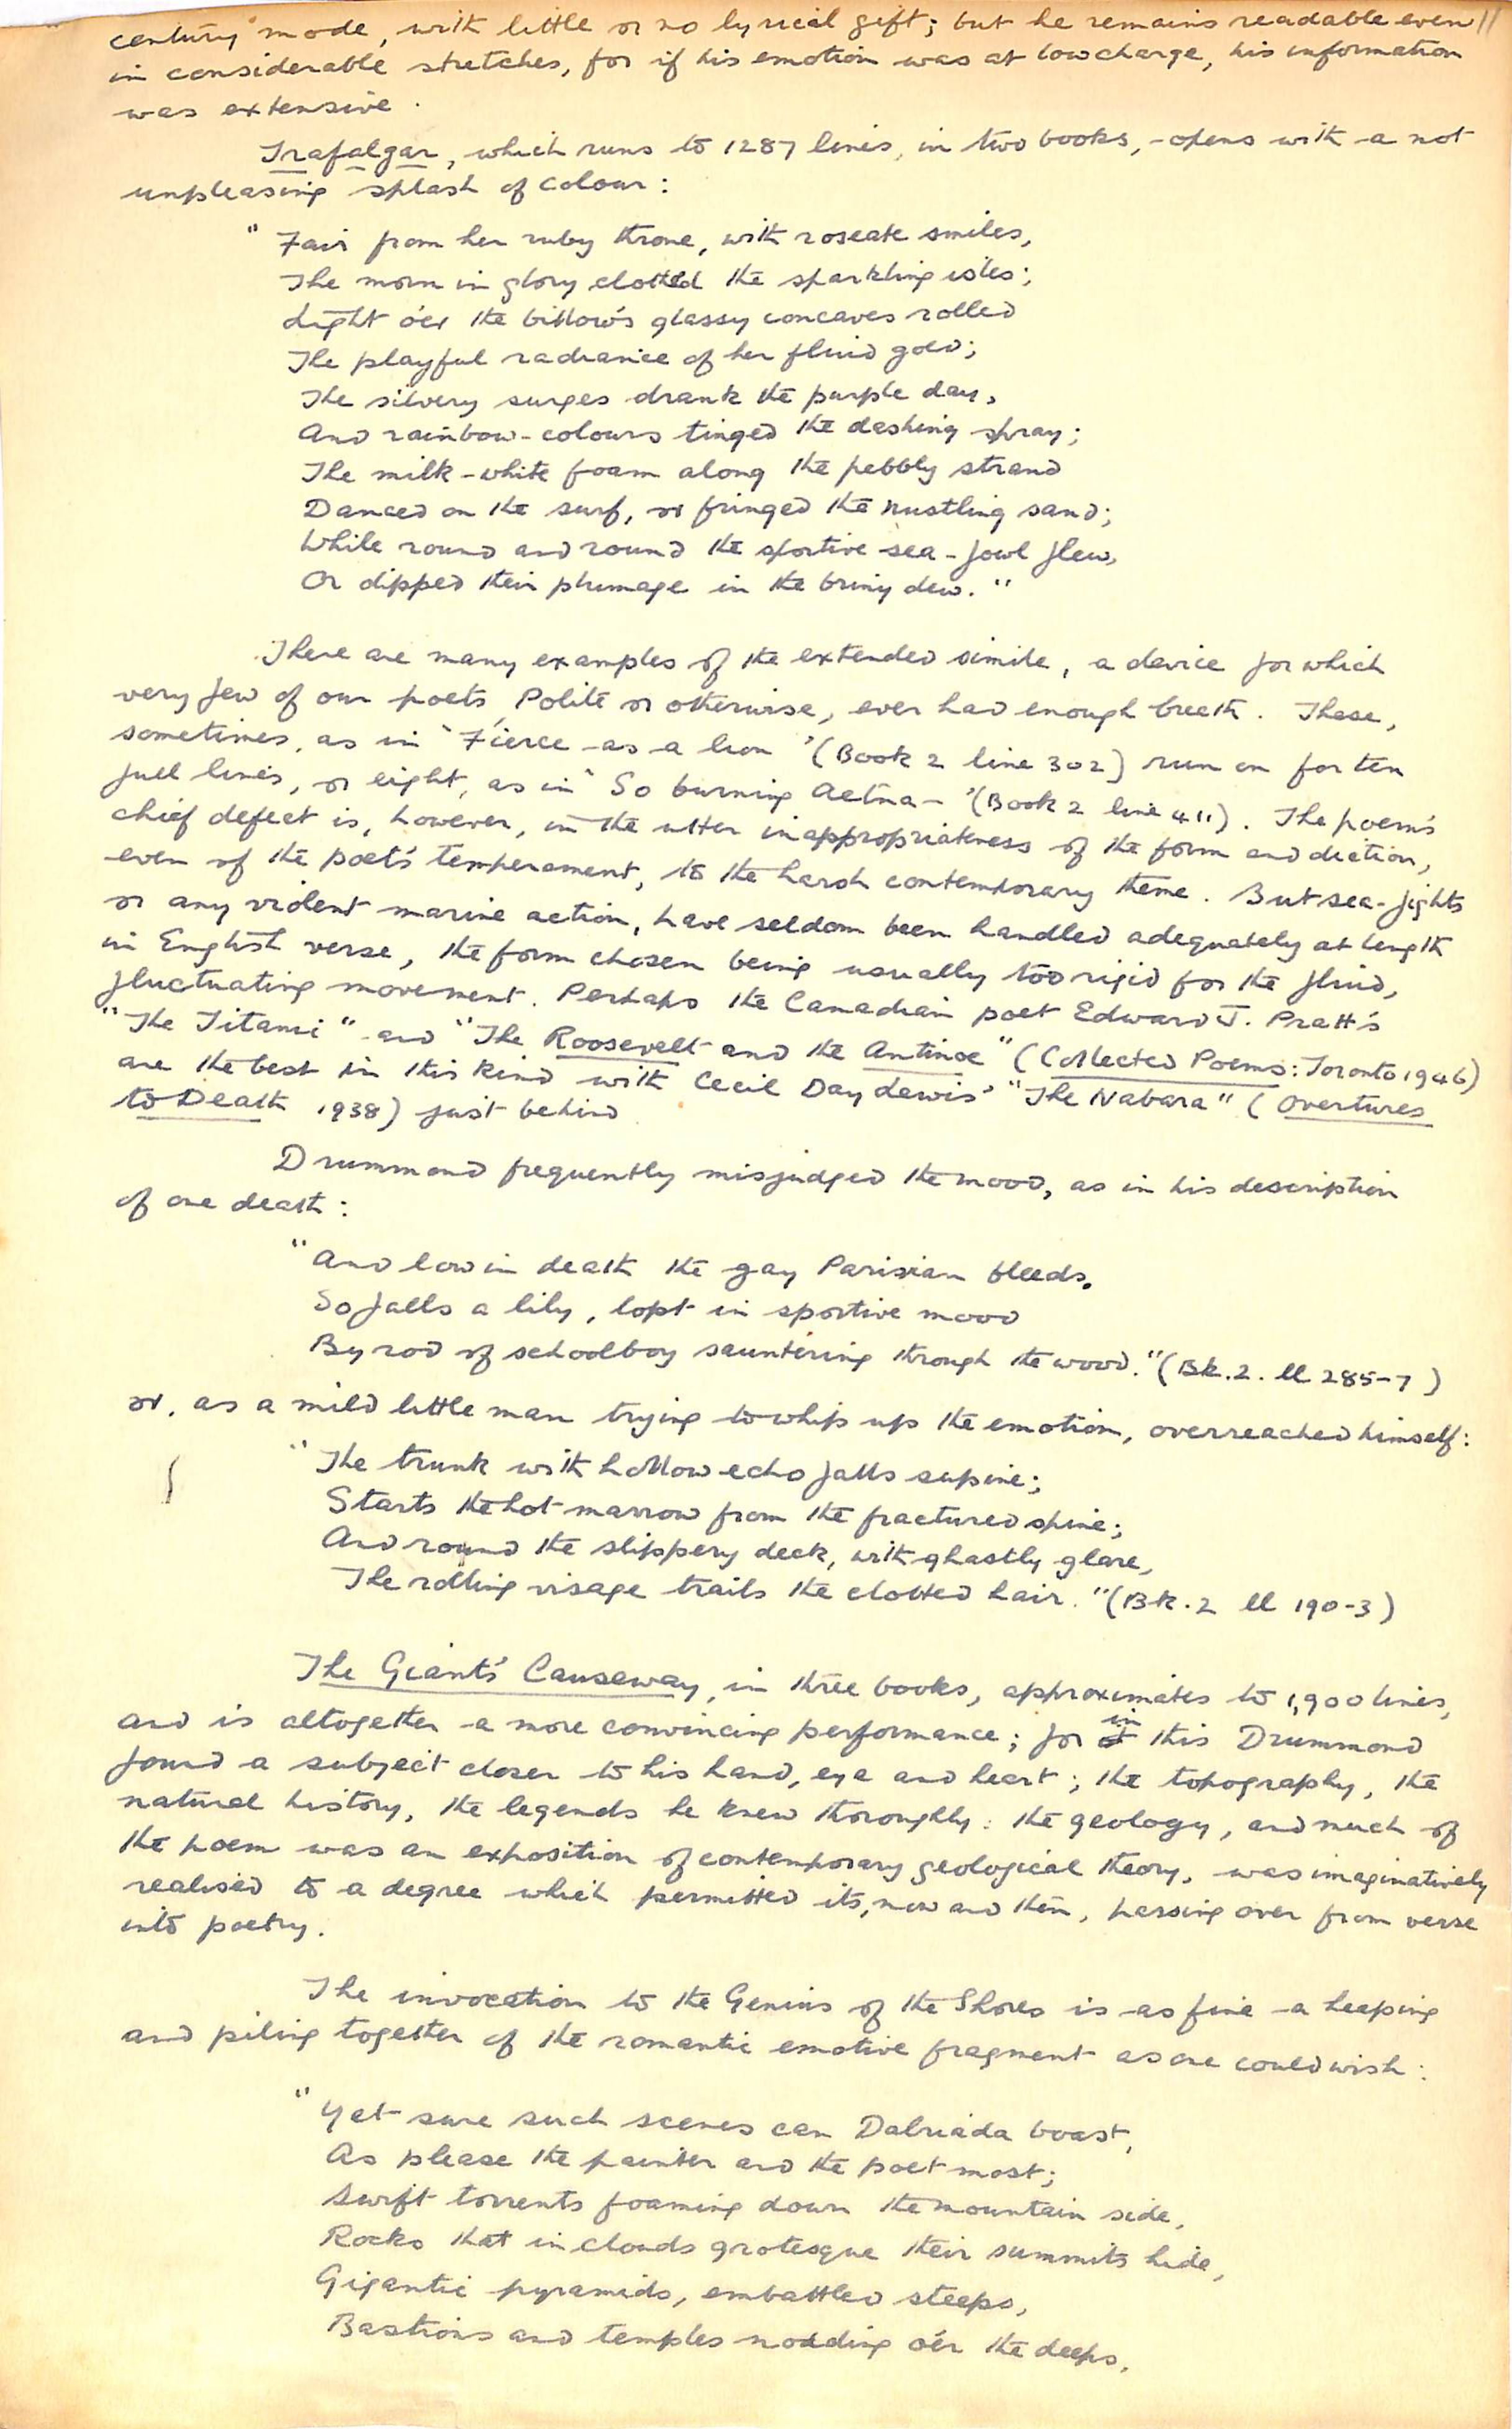 century mode, with little or no lyrical gift; but he remains readable even 11
in considerable stretches, for if his emotion was at low charge, his information
was extensive.
Trafalgar, which runs to 1287 lines, in two books, opens with a not
unpleasing splash of colour:
" Fair from her ruby throne, with roseate smiles,
The morn in glory clothed the sparkling isles;
Light o'er the billow's glassy concaves rolled
The playful radiance of her fluid gold;
The silvery surges drank the purple day,
And rainbow-colours tinged the dashing spray;
The milk-white foam along the pebbly strand
Danced on the surf, or fringed the rustling sand;
While round and round the sportive sea-fowl flew,
Or dipped their plumage in the briny dew."
There are many examples of the extended simile, a device for which
very few of our poets, Polite or otherwise, ever had enough breath. These,
sometimes, as in 'Fierce as a lion' (Book 2 line 302) run on for ten
full lines, or eight, as in 'So burning Aetna-' (Book 2 line 411). The poem's
chief defect is, however, in the utter inappropriateness of the form and diction,
even of the poet's temperament, to the harsh contemporary theme. But sea-fights
or any violent marine action, have seldom been handled adequately at length
in English verse, the form chosen being usually too rigid for the fluid,
fluctuating movement. Perhaps the Canadian poet Edward J. Pratt's
"The Titanic" and "The Roosevelt and the Antinoe" (Collected Poems: Toronto 1946)
are the best in this kind with Cecil Day Lewis' "The Nabara" (Overtures
to Death 1938) just behind
Drummond frequently misjudged the mood, as in his description
of one death:
"And low in death the gay Parisian bleeds.
So falls a lily, lopt in sportive mood
By rod of schoolboy sauntering through the wood." (Bk. 2. ll 285-7)
or, as a mild little man trying to whip up the emotion, overreached himself:
"The trunk with hollow echo falls supine;
Starts the hot marrow from the fractured spine;
And round the slippery deck, with ghastly glare,
The rolling visage trails the clotted hair." (Bk. 2 ll 190-3)
The Giant's Causeway, in three books, approximates to 1,900 lines,
and is altogether a more convincing performance; for in this Drummond
found a subject closer to his hand, eye and heart; the topography, the
natural history, the legends he knew thoroughly: the geology, and much of
the poem was an exposition of contemporary geological theory, was imaginatively
realised to a degree which permitted its, now and then, passing over from verse
into poetry.
The invocation to the Genius of the Shores is as fine a heaping
and piling together of the romantic emotive fragment as one could wish:
"Yet sure such scenes can Dalriada boast,
As please the painter and the poet most;
Swift torrents foaming down the mountain side,
Rocks that in clouds grotesque their summits hide,
Gigantic pyramids, embattled steeps,
Bastions and temples nodding o'er the deeps,